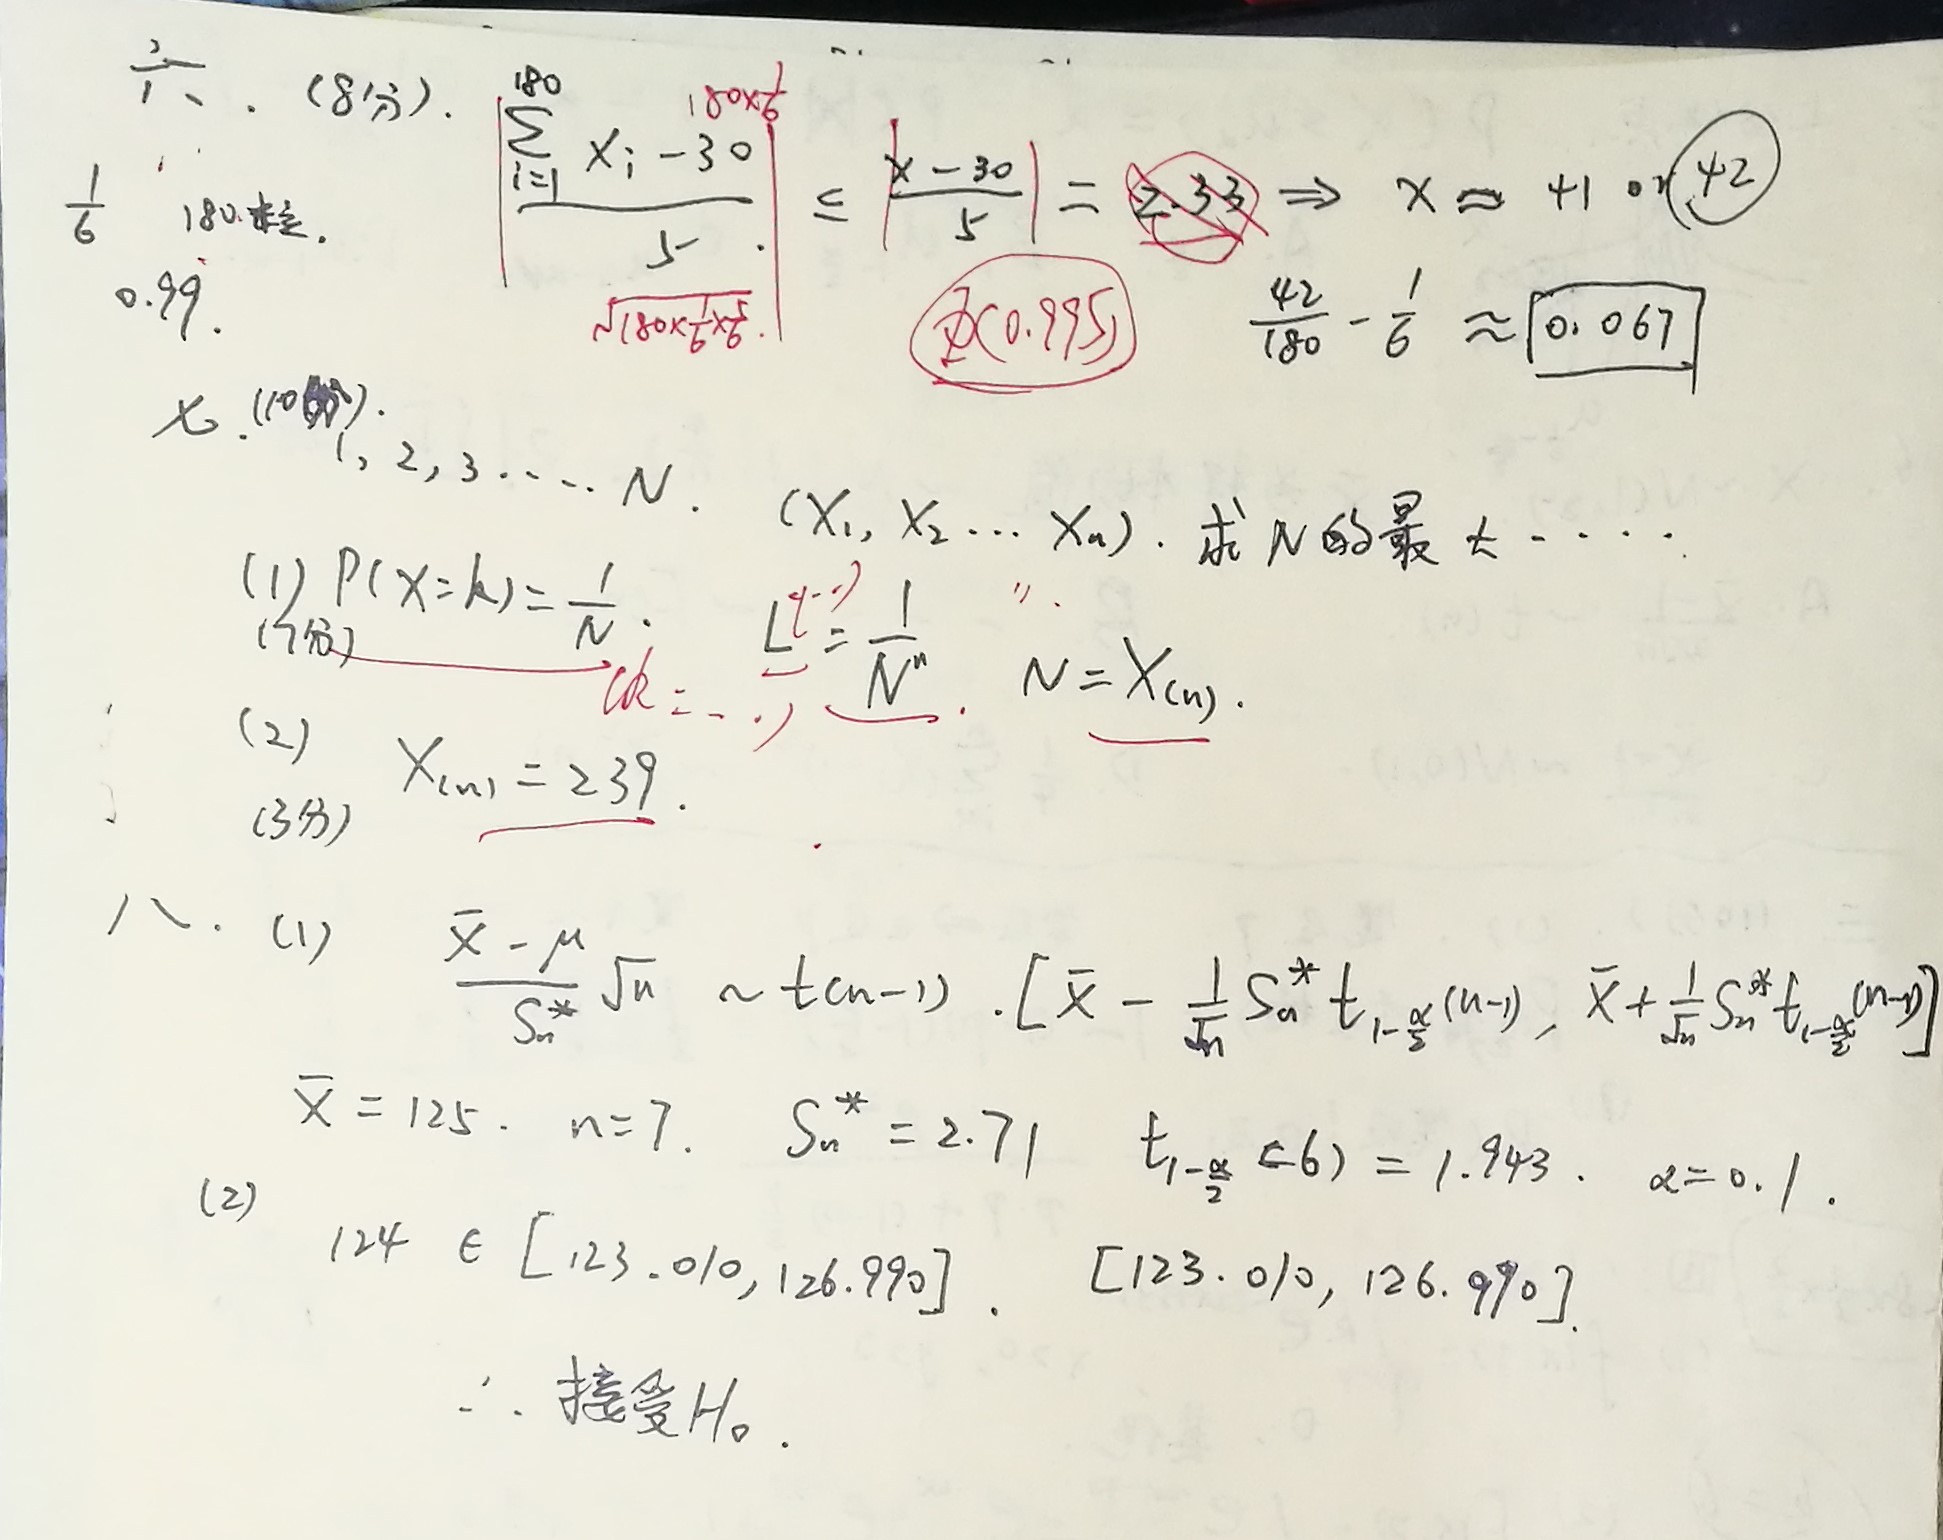 六. (8分). |∑_{i=1}^{180} X_i - 30 / 5| ≤ |x - 30 / 5| = 2.33 ⇒ x ≈ 41 or 42
180×1/6
1/6 180粒.
√180×1/6×5/6.
0.99. Φ(0.995) 42/180 - 1/6 ≈ 0.067
七. (10分).
1, 2, 3 ..... N. (X₁, X₂ ... Xₙ). 求N的最大.....
(1) P(X=k) = 1/N. L(...) = 1/Nⁿ. N = X₍ₙ₎.
(7分) (k = ...)
(2) X₍ₙ₎ = 239.
(3分)
八. (1) (x̄ - μ)/Sₙ* √n ~ t(n-1). [x̄ - 1/√n Sₙ* t_{1-α/2}(n-1), x̄ + 1/√n Sₙ* t_{1-α/2}(n-1)]
x̄ = 125. n=7. Sₙ* = 2.71 t_{1-α/2}(6) = 1.943. α=0.1.
(2) 124 ∈ [123.010, 126.990]. [123.010, 126.990].
∴ 接受H₀.